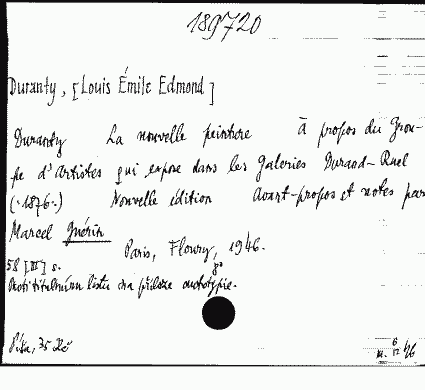 189720
Duranty, [Louis Émile Edmond]
Duranty La nouvelle peinture À propos du Grou-
pe d'Artistes qui expose dans les Galeries Durand-Ruel
(.1876.) Nouvelle édition Avant-propos et notes par
Marcel Guérin
Paris, Floury, 1946.
58 [III] s.
Proti titulnímu listu na příloze autotypie.
35 Kč